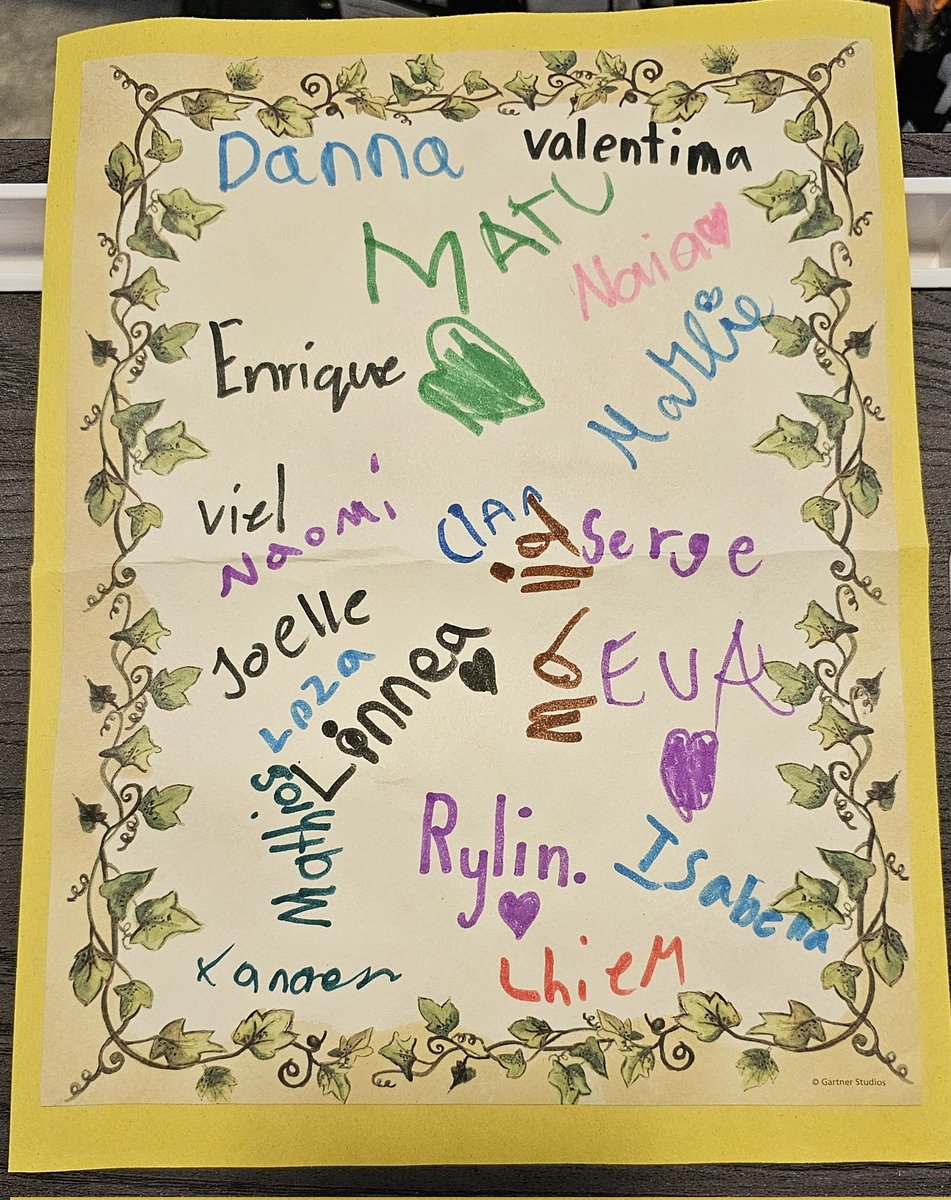 Danna
valentina
MATU
Naia
Enrique
Marlie
viel
Naomi
Serge
Joelle
Loza
Linnea
EVA
Mathios
Rylin.
Isabella
© Gartner Studios